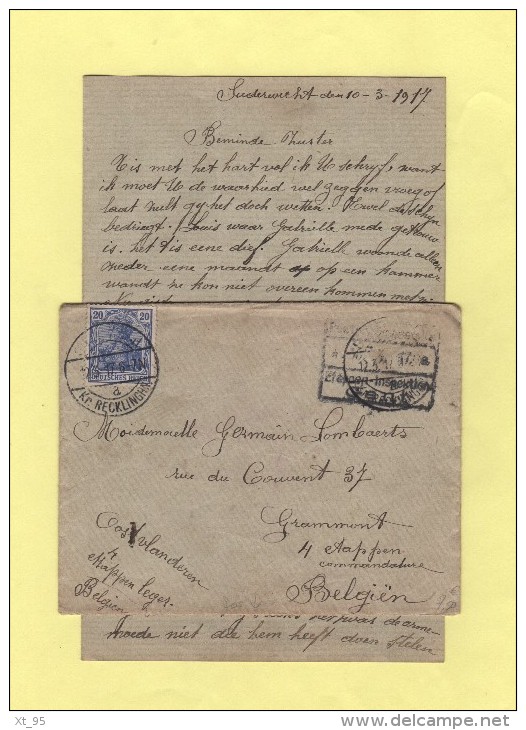 Suderwicht den 10-3-1917
Beminde Zuster
Tis met het hart vol ik U schryf, want
ik moet U de waarhied wel zeggen vroeg of
laat zult gy het doch wetten. Tewel de schijn
bedriegt. Louis waar Gabrielle mede getrouw
is. het is eene dief. Gabrielle woonde alleen
zeder eene maandt op een kammer
wandt ze kon niet overeen kommen met
20 20
DEUTSCHES REICH
a
Kr. RECKLINGHAUSEN
Etappen-Inspektion
Moidemoitelle Germain Lombaerts
rue du Couvent 37
Grammont
4 Etappen
commandature
Belgiën
Oost vlanderen
4
etappen leger
Belgien
de arme-
moede niet die hem heeft doen stelen
Xt_95
delcampe.net